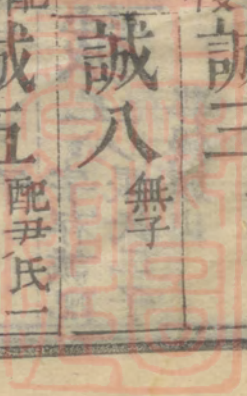 誠三
誠八 無子
誠五 配尹氏一